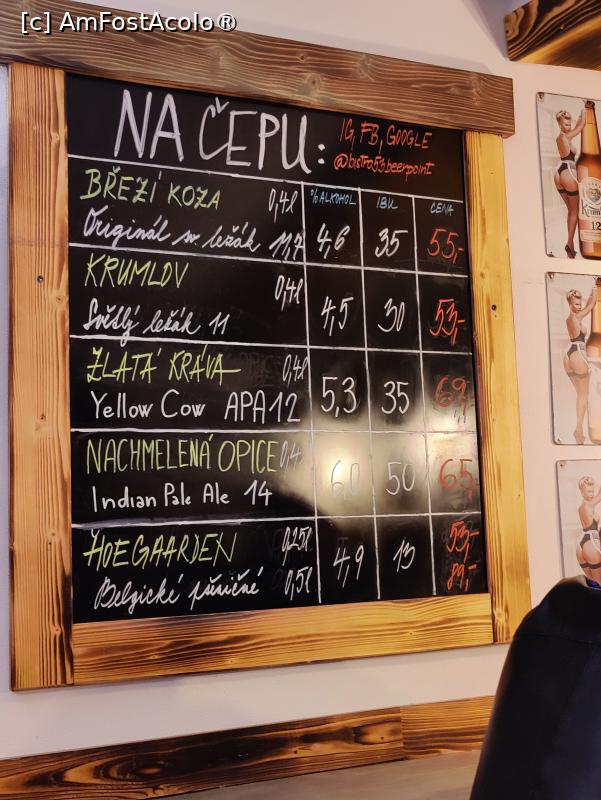 [c] AmFostAcolo®
NA ČEPU:
IG, FB, GOOGLE
@bistro53beerpoint
BŘEZÍ KOZA 0,4l % ALKOHOL IBU CENA
Originál sv. ležák 11,7 4,6 35 55,-
KRUMLOV 0,4l
Světlý ležák 11 4,5 30 53,-
ZLATÁ KRÁVA 0,4l
Yellow Cow APA 12 5,3 35 69,-
NACHMELENÁ OPICE 0,4
Indian Pale Ale 14 6,0 50 65,-
HOEGAARDEN 0,25l 53,-
Belgické pšeničné 0,5l 4,9 13 89,-
12